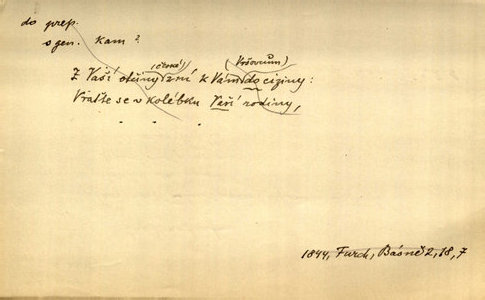 do prep.
s gen. kam?
(české!) (Vršovcům)
Z Vaší otčiny zní k Vám do ciziny:
Vraťte se v kolébku Vaší rodiny,
. . . .
1844, Furch, Básně 2, 18, 7